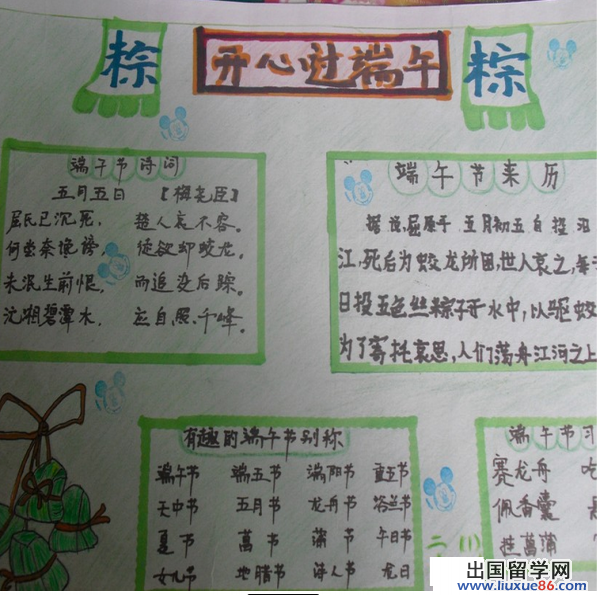 粽 开心过端午 粽
端午节诗词
五月五日 【梅尧臣】
屈氏已沉死， 楚人哀不容。
何尝奈谗谤， 徒欲却蛟龙。
未泯生前恨， 而追没后踪。
沅湘碧潭水， 应自照千峰。
端午节来历
据说，屈原于五月初五自投汨
江，死后为蛟龙所困，世人哀之，每
日投五色丝粽子于水中，以驱蛟
为了寄托哀思，人们荡舟江河之上
有趣的端午节别称
端午节 端五节 端阳节 重五节
天中节 五月节 龙舟节 浴兰节
夏节 菖节 蒲节 午日节
女儿节 地腊节 诗人节 龙日
端午节习
赛龙舟 吃
佩香囊 悬
挂菖蒲
二（1）
出国留学网
www.liuxue86.com